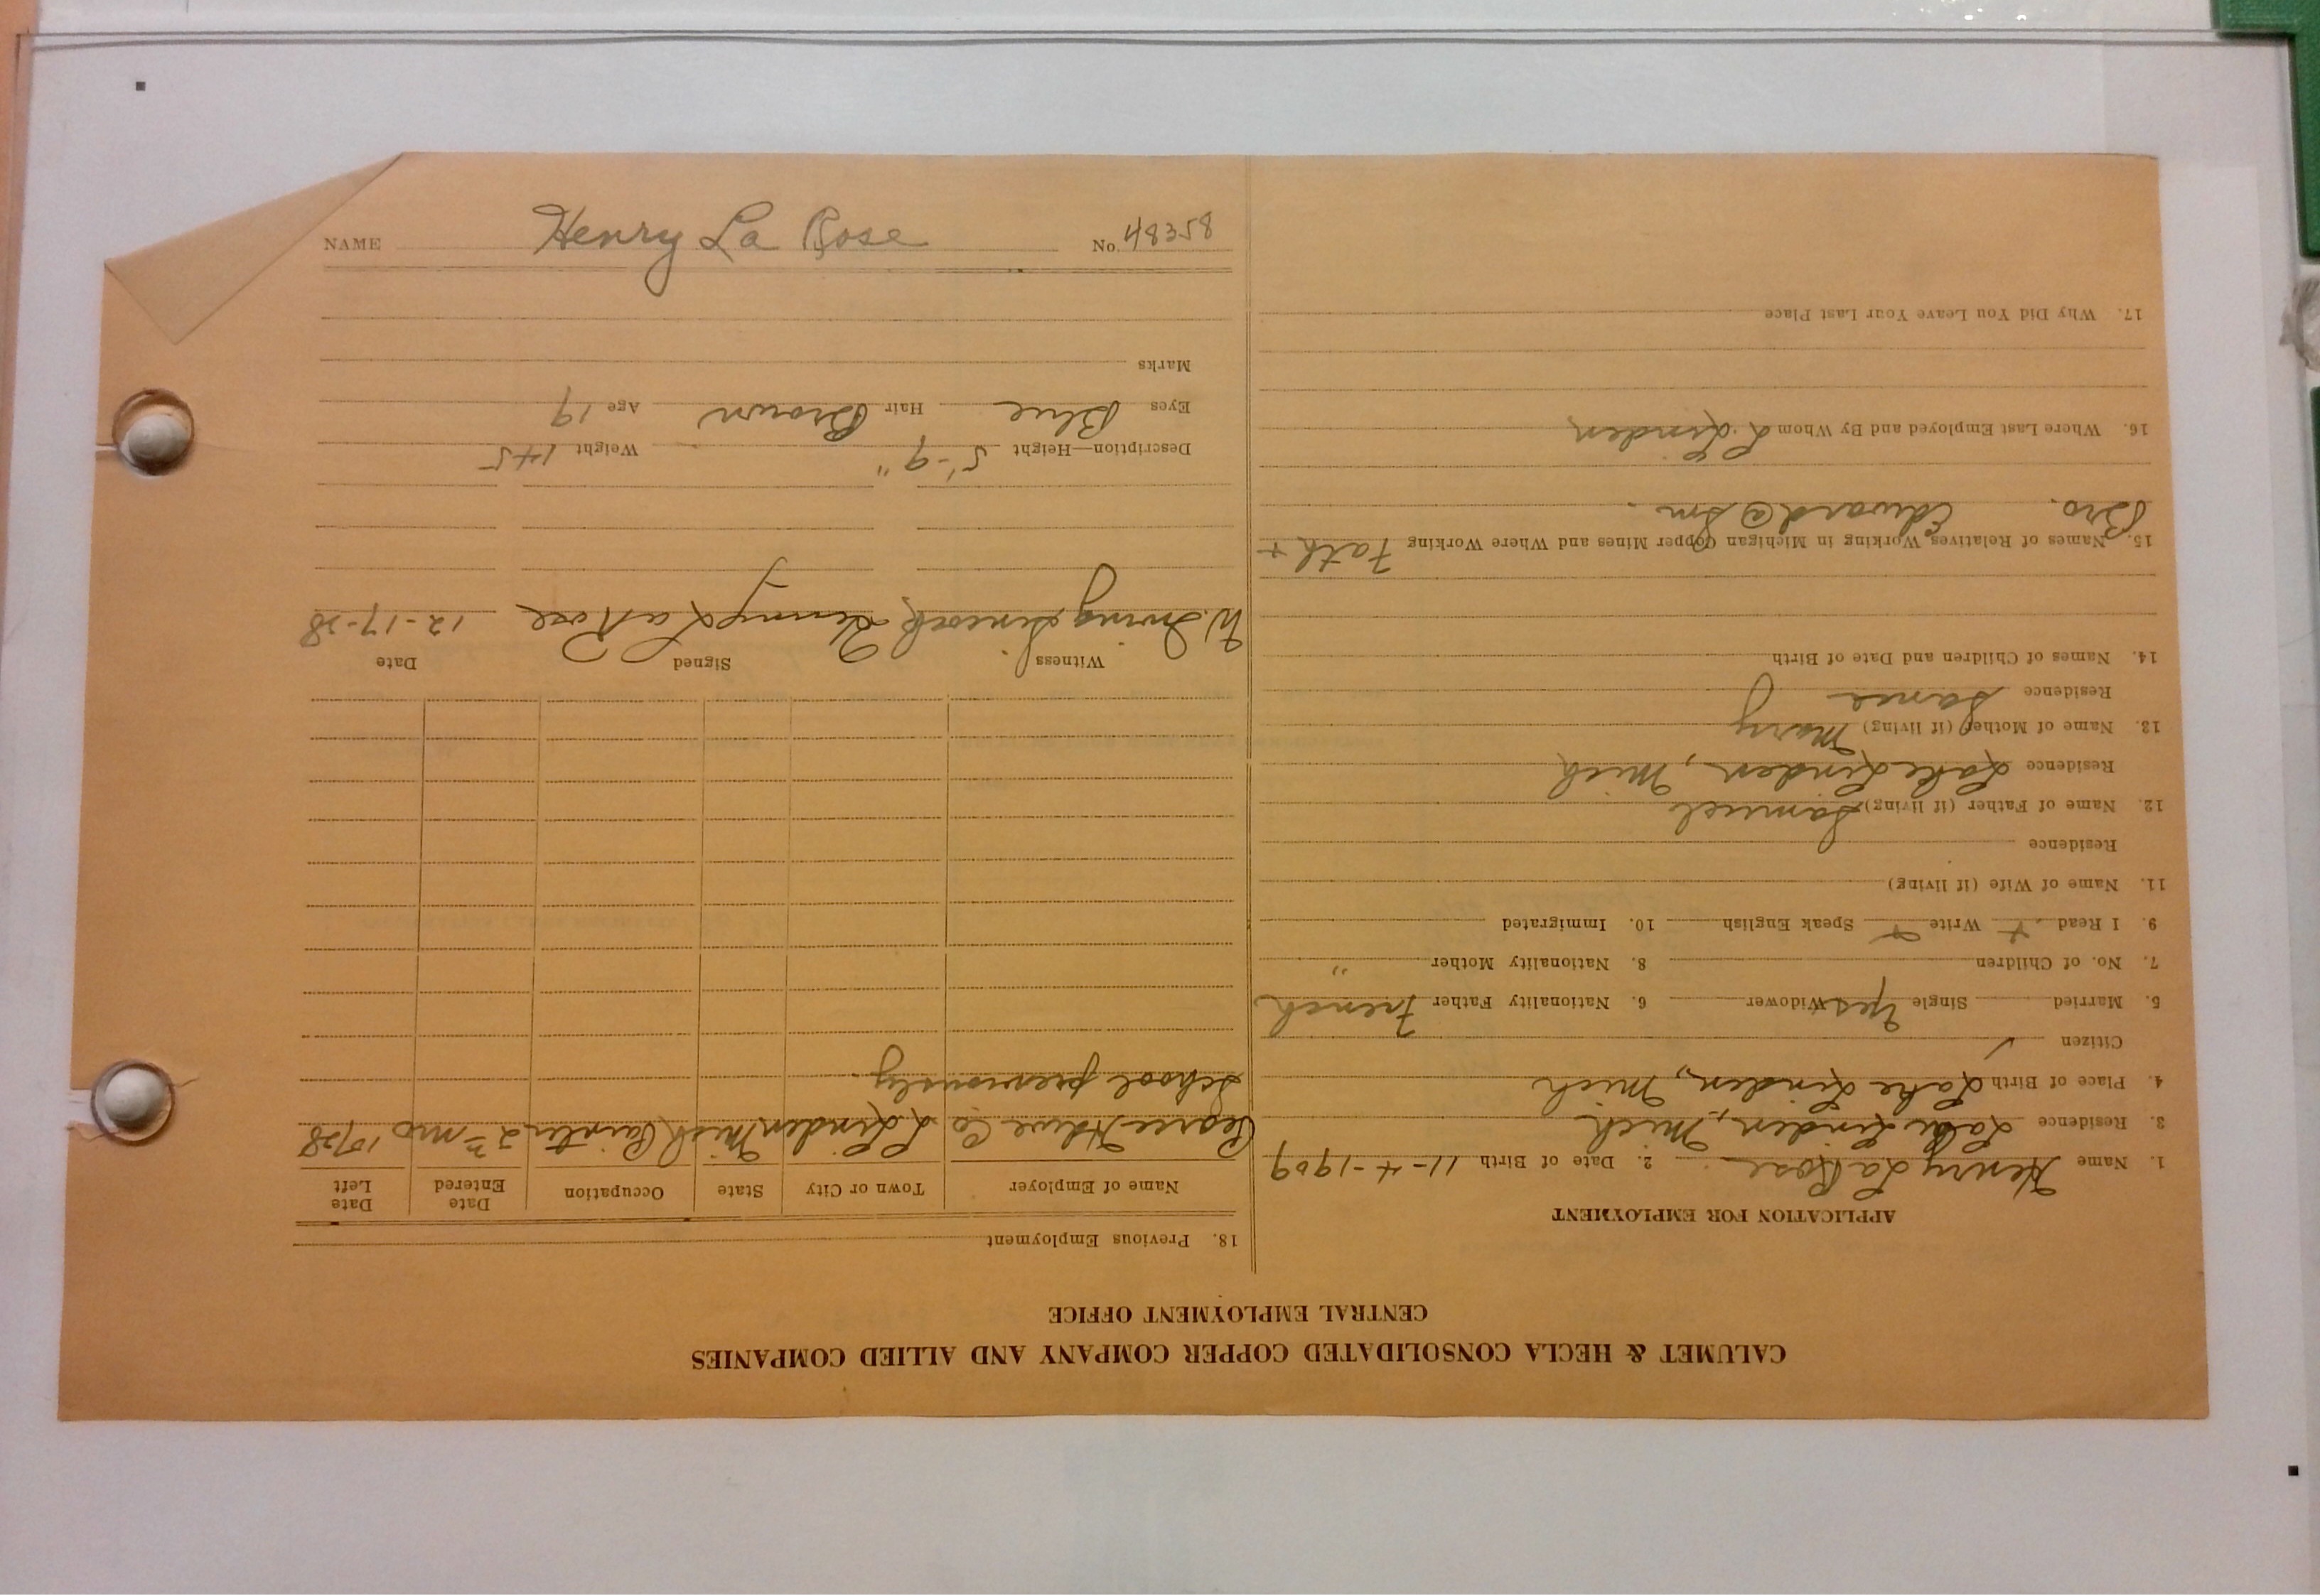 CALUMET & HECLA CONSOLIDATED COPPER COMPANY AND ALLIED COMPANIES
CENTRAL EMPLOYMENT OFFICE
APPLICATION FOR EMPLOYMENT
1. Name Henry LaRose 2. Date of Birth 11-4-1909
3. Residence Lake Linden, Mich
4. Place of Birth Lake Linden, Mich
Citizen ✓
5. Married Single Yes Widower 6. Nationality Father French
7. No. of Children 8. Nationality Mother "
9. I Read + Write + Speak English 10. Immigrated
11. Name of Wife (if living)
Residence
12. Name of Father (if living) Samuel
Residence Lake Linden, Mich
13. Name of Mother (if living) Mary
Residence Same
14. Names of Children and Date of Birth
15. Names of Relatives Working in Michigan Copper Mines and Where Working Fath +
Bro. Edward @ Sm.
16. Where Last Employed and By Whom L. Linden
17. Why Did You Leave Your Last Place
18. Previous Employment
Name of Employer Town or City State Occupation Date Entered Date Left
Co L Linden Mich 2 mo 10/28
School previously.
Witness Signed Date
W. Irving Henry LaRose 12-17-28
Description—Height 5'-9" Weight 145
Eyes Blue Hair Brown Age 19
Marks
NAME Henry La Rose No. 48358